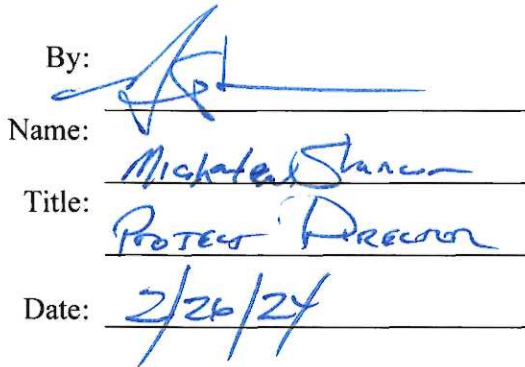 By:
Name: Michael
Title: Project Director
Date: 2/26/24